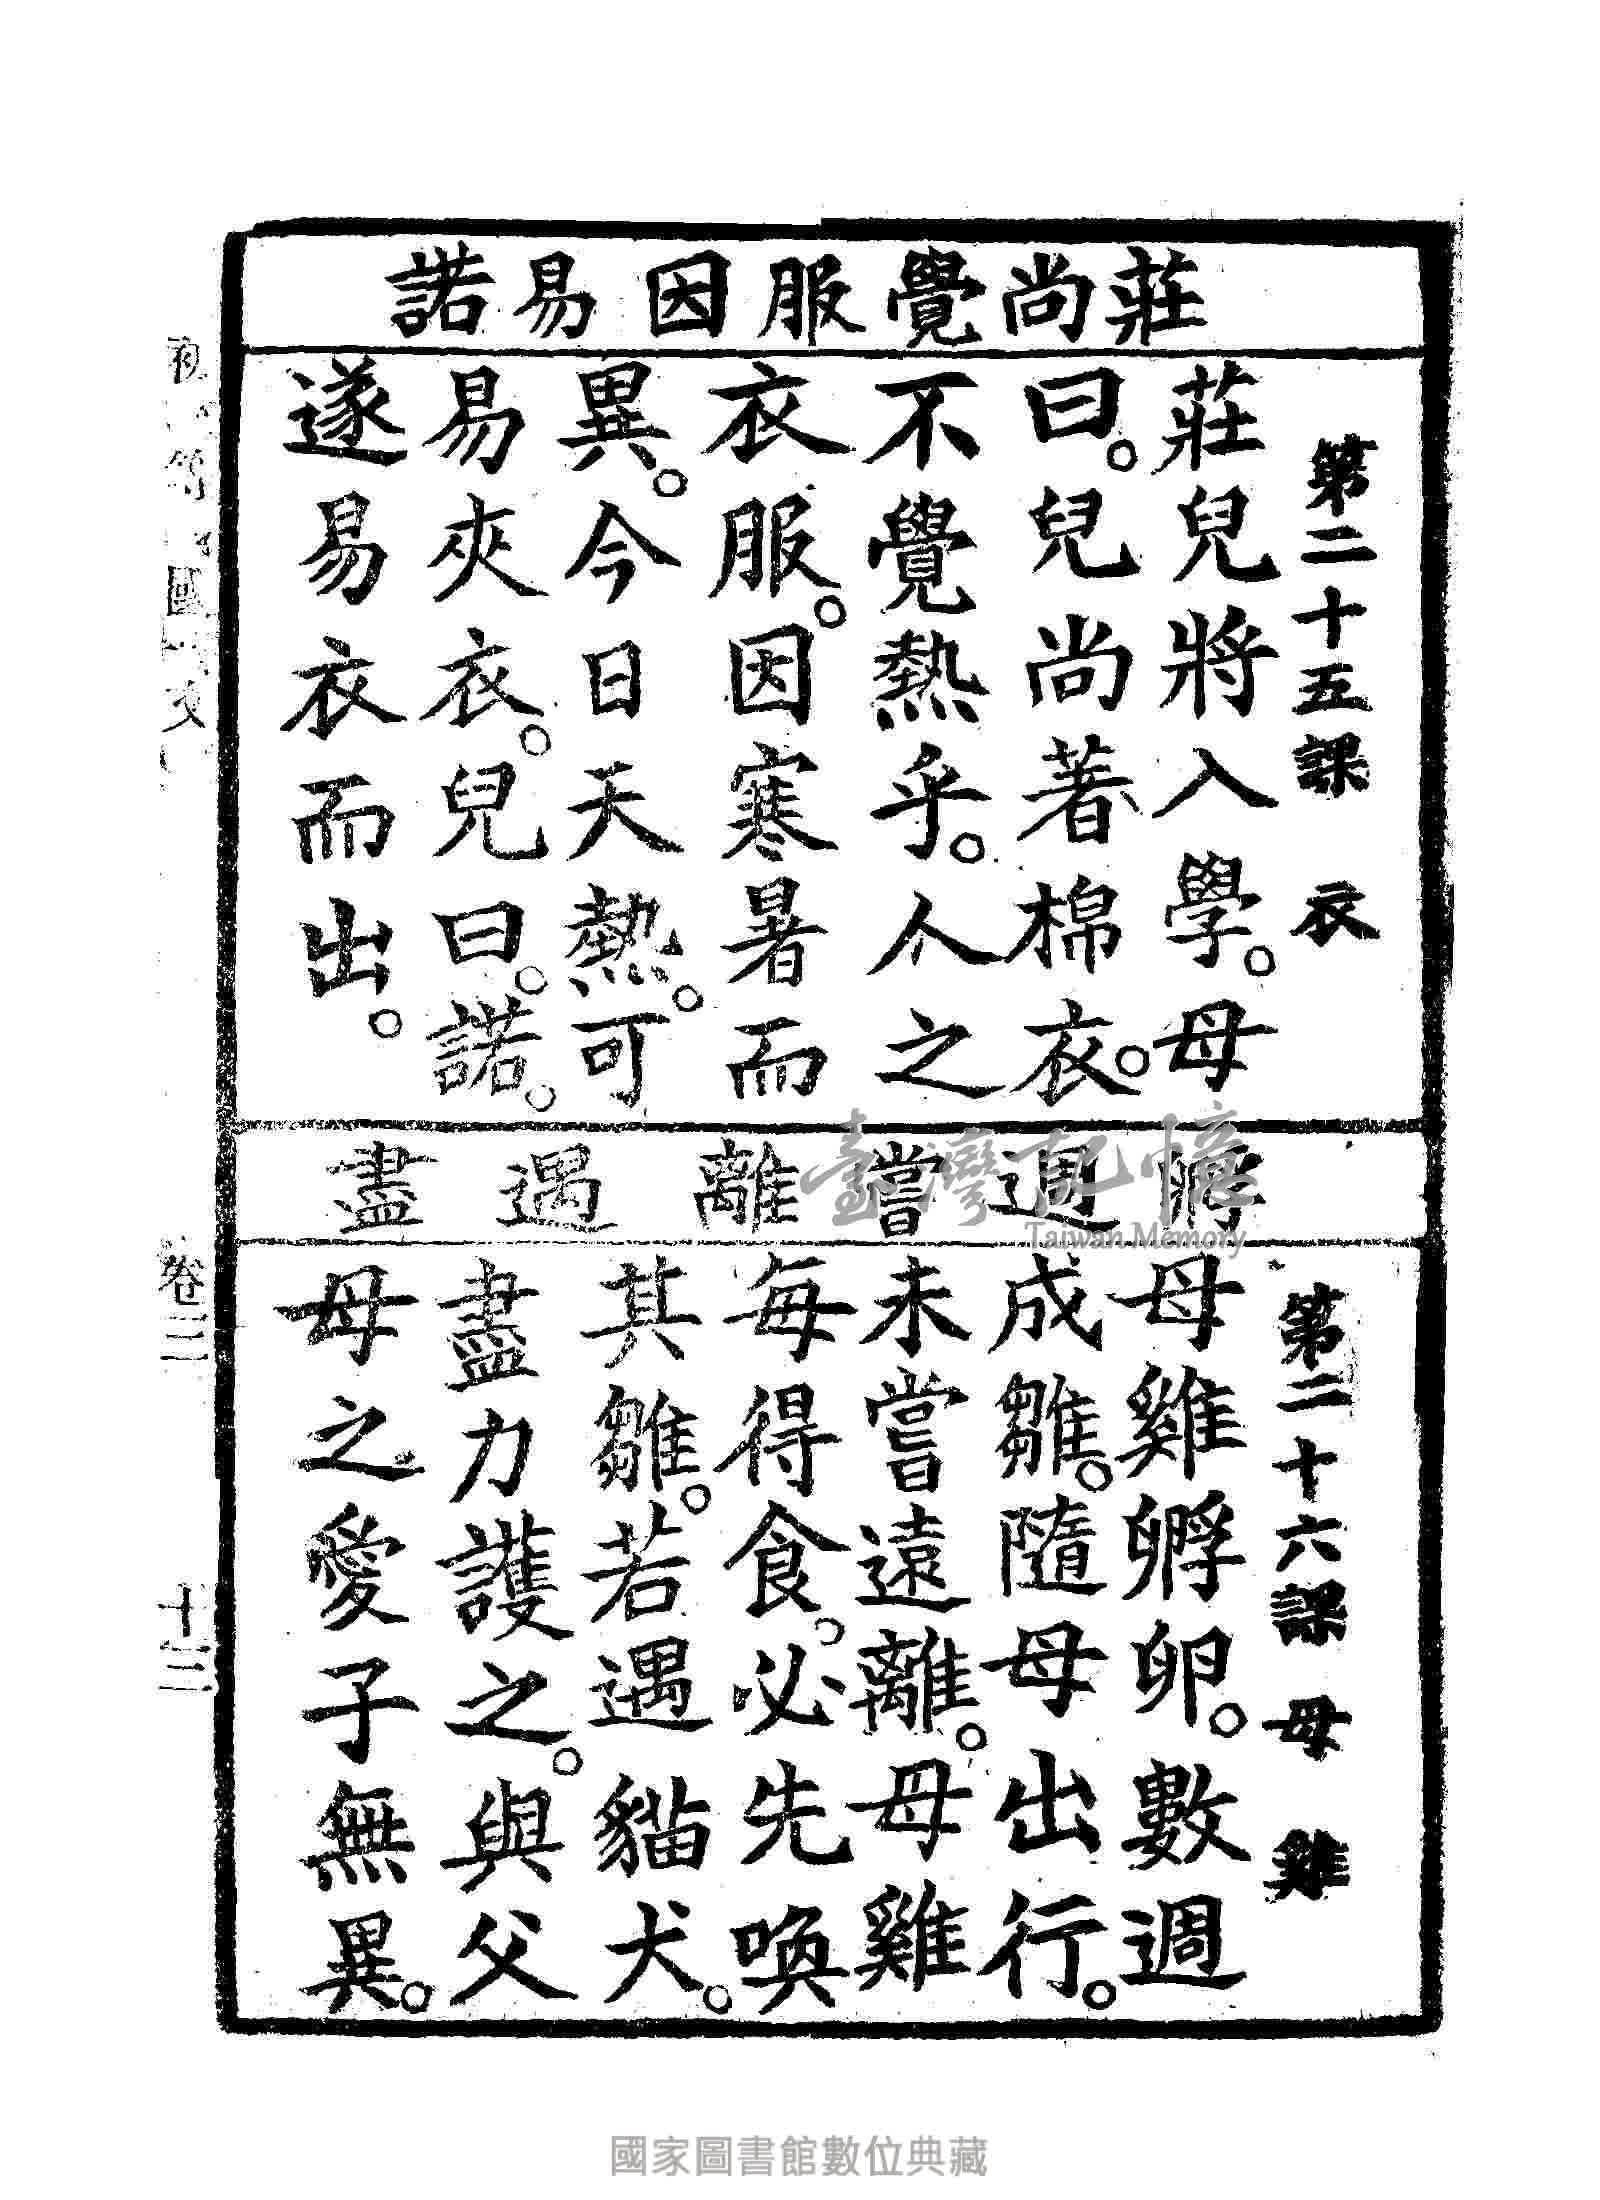 莊尚覺服因易諾
第二十五課 衣
莊兒將入學。母
曰。兒尚著棉衣。
不覺熱乎。人之
衣服。因寒暑而
異。今日天熱。可
易夾衣。兒曰。諾。
遂易衣而出。
孵週嘗離遇盡
第二十六課 母雞
母雞孵卵。數週
成雛。隨母出行。
未嘗遠離。母雞
每得食。必先喚
其雛。若遇貓犬。
盡力護之。與父
母之愛子無異。
國文
卷三
十三
臺灣記憶
Taiwan Memory
國家圖書館數位典藏